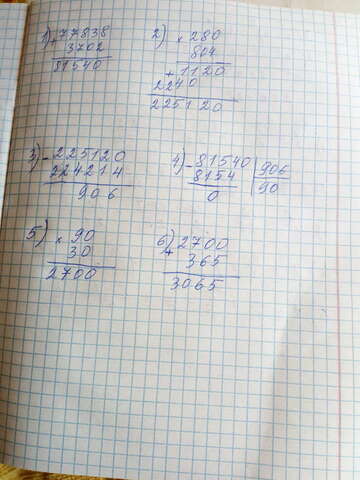 1) + 77838 2) × 280
3702 804
81540 + 1120
2240
225120
3) - 225120 4) - 81540 | 906
224214 8154 90
906 0
5) × 90 6) + 2700
30 365
2700 3065